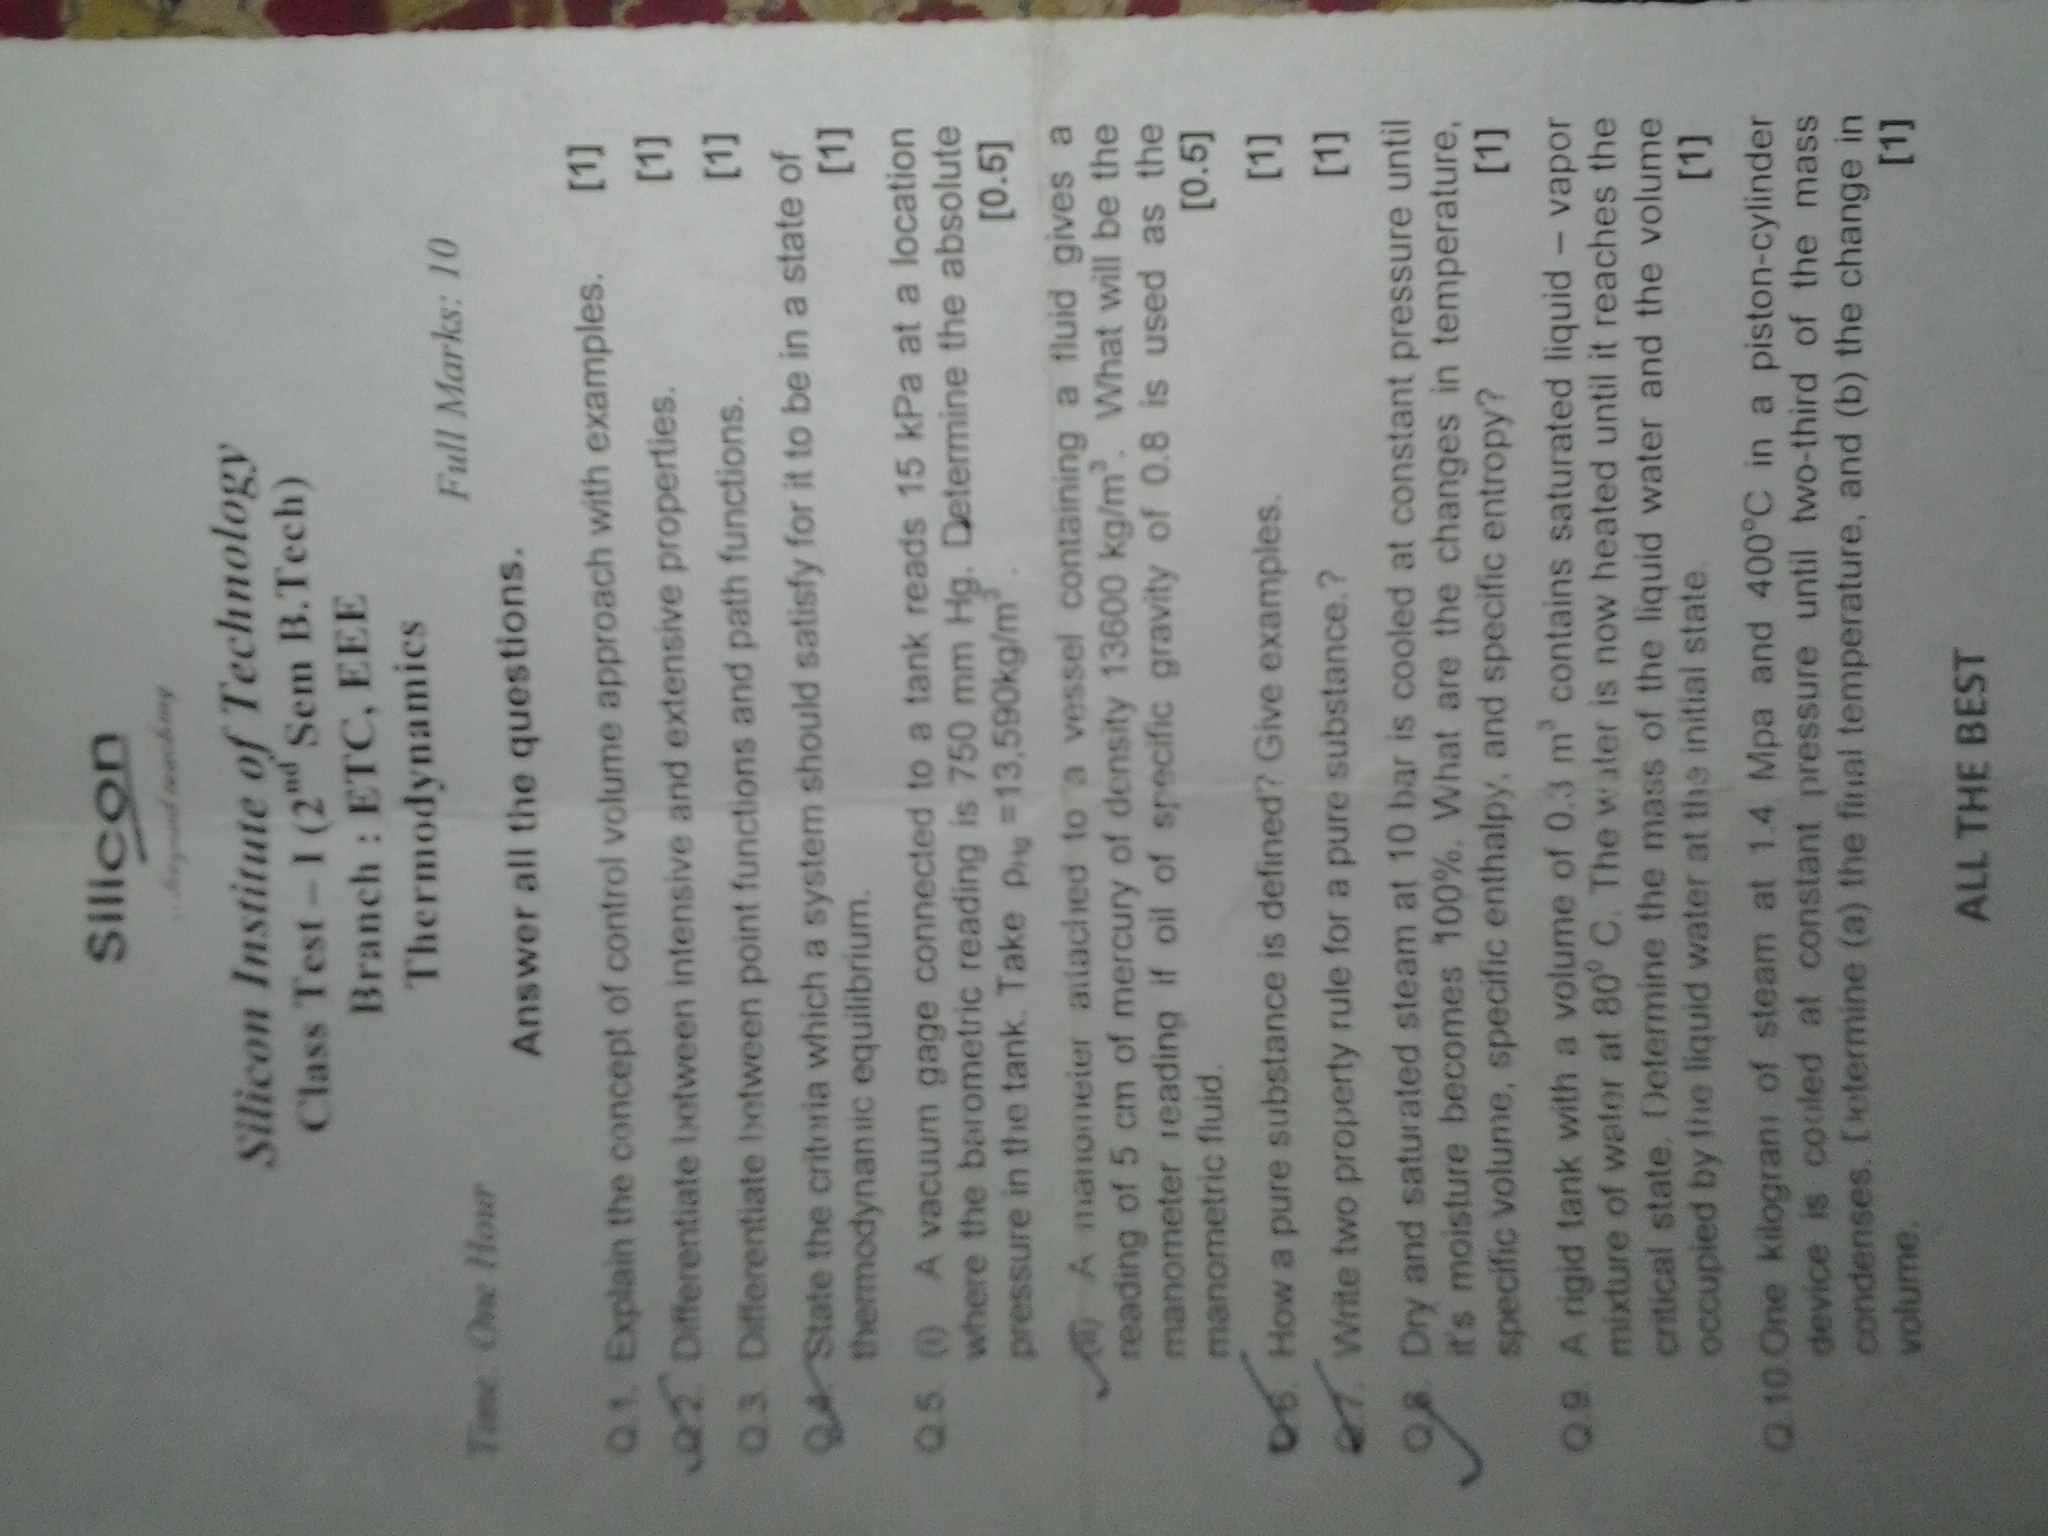 Silicon
...beyond teaching
Silicon Institute of Technology
Class Test – I (2nd Sem B.Tech)
Branch : ETC, EEE
Thermodynamics
Time: One Hour Full Marks: 10
Answer all the questions.
Q.1. Explain the concept of control volume approach with examples. [1]
Q.2. Differentiate between intensive and extensive properties. [1]
Q.3. Differentiate between point functions and path functions. [1]
Q.4. State the criteria which a system should satisfy for it to be in a state of
thermodynamic equilibrium. [1]
Q.5. (i) A vacuum gage connected to a tank reads 15 kPa at a location
where the barometric reading is 750 mm Hg. Determine the absolute
pressure in the tank. Take ρHg =13,590kg/m³. [0.5]
(ii) A manometer attached to a vessel containing a fluid gives a
reading of 5 cm of mercury of density 13600 kg/m³. What will be the
manometer reading if oil of specific gravity of 0.8 is used as the
manometric fluid. [0.5]
Q.6. How a pure substance is defined? Give examples. [1]
Q.7. Write two property rule for a pure substance.? [1]
Q.8. Dry and saturated steam at 10 bar is cooled at constant pressure until
it's moisture becomes 100%. What are the changes in temperature,
specific volume, specific enthalpy, and specific entropy? [1]
Q.9. A rigid tank with a volume of 0.3 m³ contains saturated liquid – vapor
mixture of water at 80⁰ C. The water is now heated until it reaches the
critical state. Determine the mass of the liquid water and the volume
occupied by the liquid water at the initial state. [1]
Q.10.One kilogram of steam at 1.4 Mpa and 400°C in a piston-cylinder
device is cooled at constant pressure until two-third of the mass
condenses. Determine (a) the final temperature, and (b) the change in
volume. [1]
ALL THE BEST